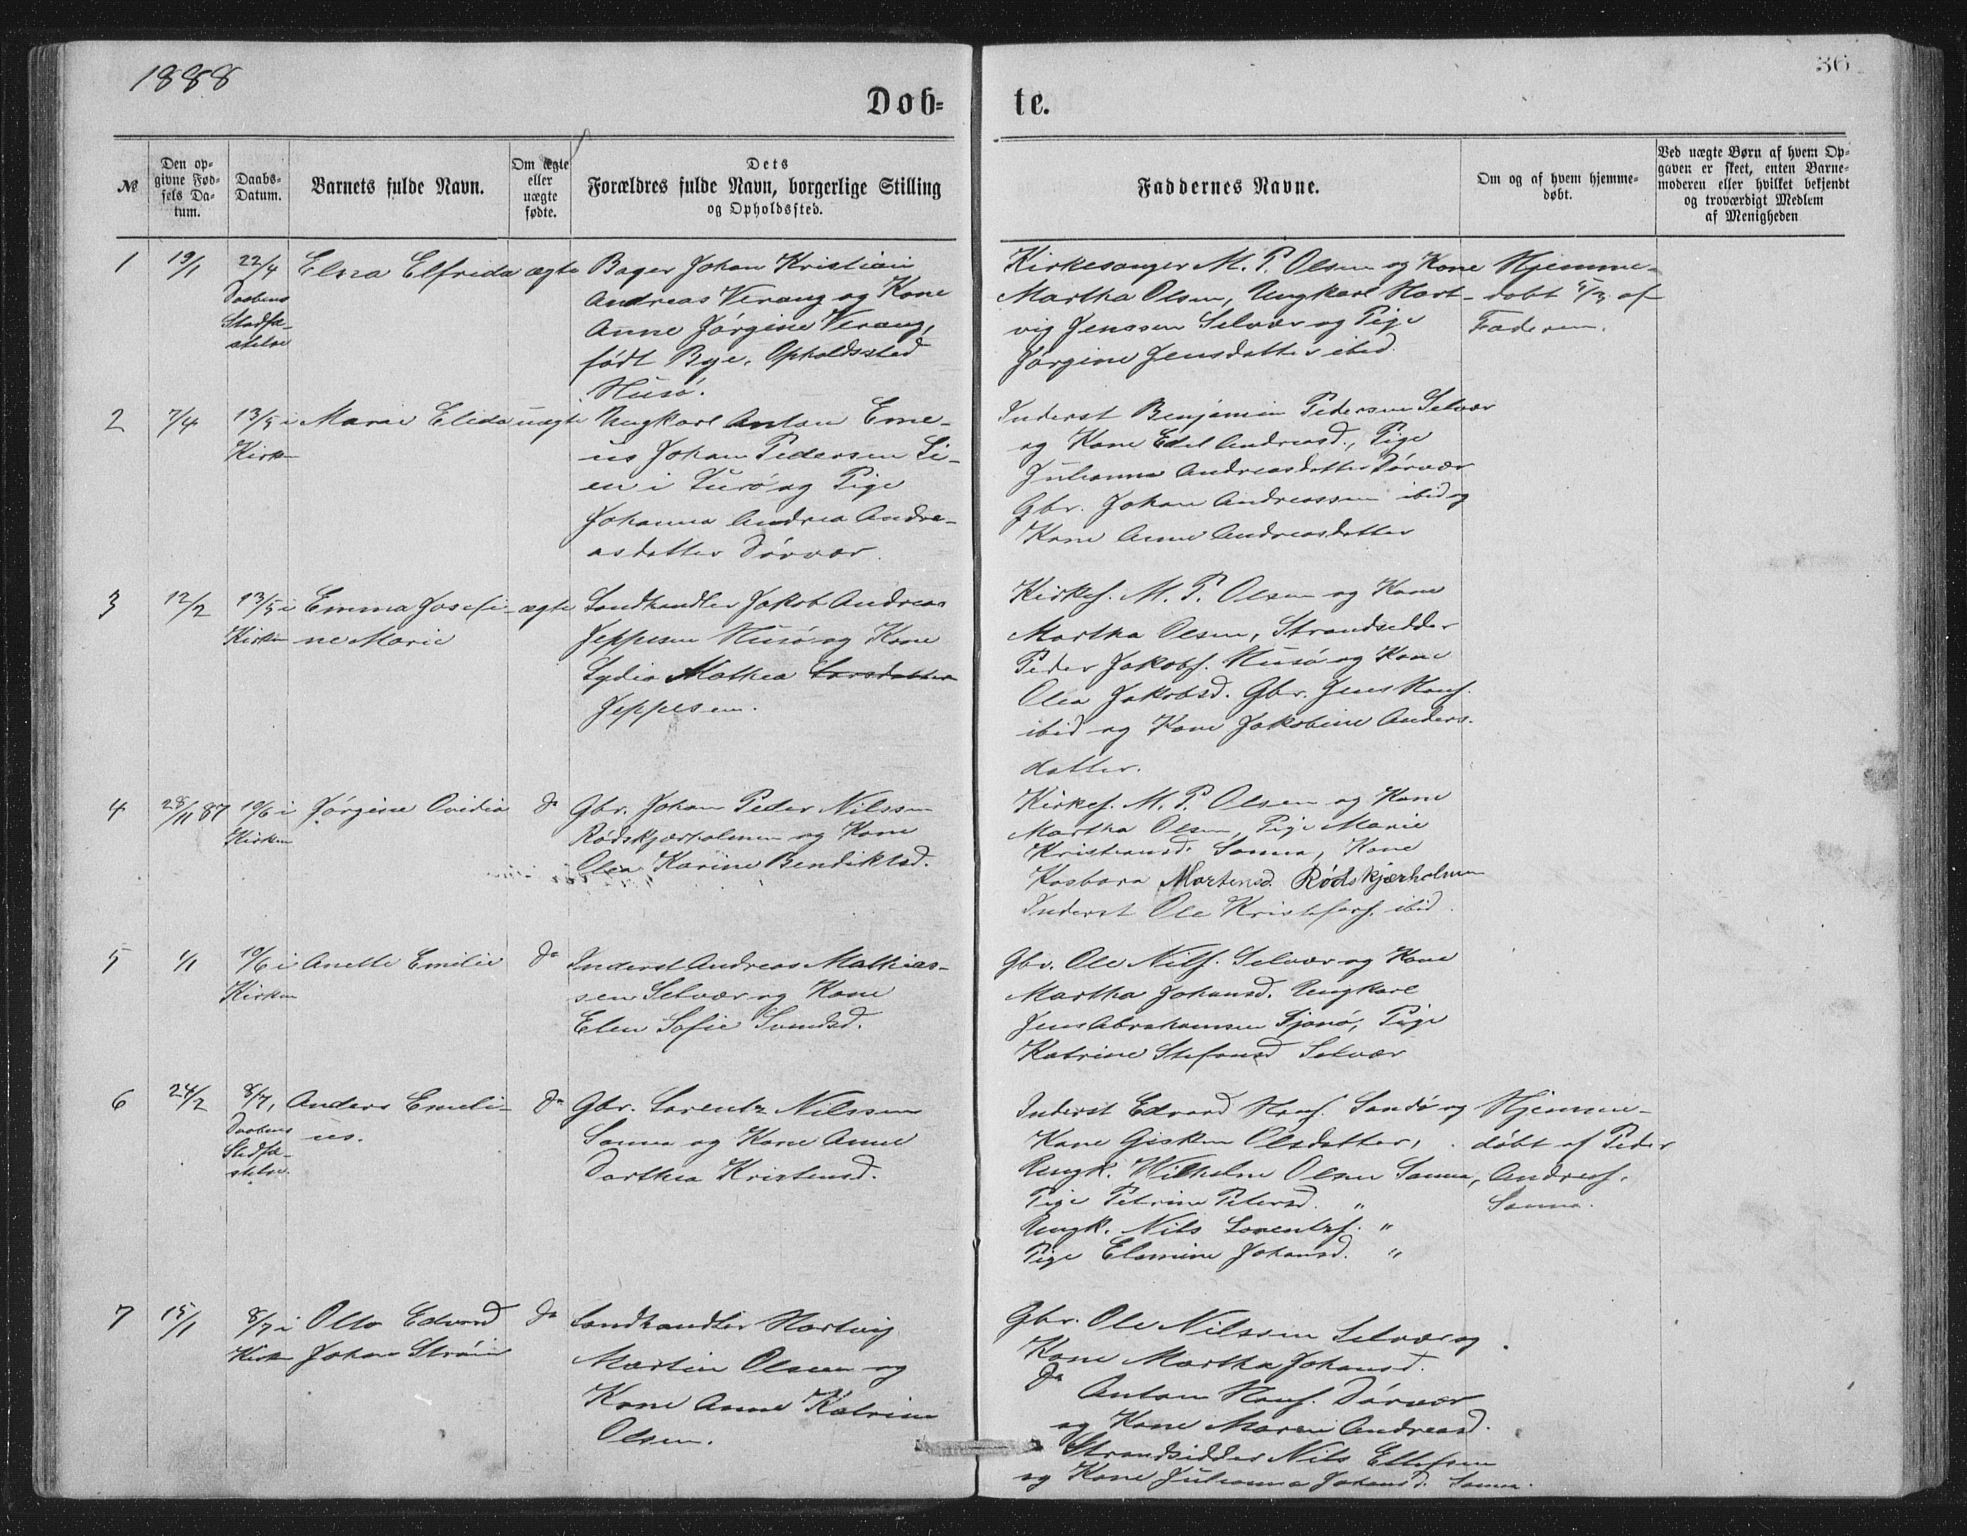 1888
36
Døb-
te.
№
Den op-
givne Fød-
sels Da-
tum.
Daabs-
Datum.
Barnets fulde Navn.
Om ægte
eller
uægte
fødte.
Dets
Forældres fulde Navn, borgerlige Stilling
og Opholdssted.
Faddernes Navne.
Om og af hvem hjemme-
døbt.
Ved uægte Børn af hvem Op-
gaven er skeet, enten Barne-
moderen eller hvilket bekjendt
og troværdigt Medlem
af Menigheden
1
19/1
22/4
Daabens
Stadfæ-
stelse
Elna Elfrida
ægte
Bager Johan Kristian
Andreas Verang og Kone
Anne Jørgine Verang,
født Bye. Opholdssted
Husø.
Kirkesanger M. P. Olsen og Kone
Martha Olsen, Ungkarl Hart-
vig Jenssen Selvær og Pige
Jørgine Jensdatter ibid.
Hjemme-
døbt af
Faderen.
2
7/4
13/5 i
Kirken
Marie Elida
uægte
Ungkarl Anton Eme-
us Johan Pedersen Li-
en i Lurø og Pige
Johanna Andrea Andre-
asdatter Dørvær.
Inderst Benjamin Pedersen Selvær
og Kone Edel Andreasd., Pige
Julianna Andreasdatter Dørvær
Gbr. Johan Andreassen ibid og
Kone Anne Andreasdatter
3
12/2
13/5 i
Kirken
Emma Josefi-
ne Marie
ægte
Landhandler Jakob Andreas
Jeppesen Husø og Kone
Lydia Mathea Larsdatter
Jeppesen.
Kirkes. M. P. Olsen og Kone
Martha Olsen, Strandsidder
Peder Jakobs. Husø og Kone
Olea Jakobsd. Gbr. Jens Hans.
ibid og Kone Jakobine Anders-
datter.
4
28/11 87
10/6 i
Kirken
Jørgine Ovidia
do
Gbr. Johan Peder Nilssen
Rødskjærholmen og Kone
Olea Karine Bendiktsd.
Kirkes. M. P. Olsen og Kone
Martha Olsen, Pige Marie
Kristiansd. Sanna, Kone
Mortensd. Rødskjærholmen
Inderst Ole Kristofers. ibid.
5
1/1
10/6 i
Kirken
Anette Emilie
do
Inderst Andreas Mathias-
sen Selvær og Kone
Elen Sofie
Gbr. Ole Nils. Selvær og Kone
Martha Johansd. Ungkarl
Jens Abrahamsen Sjonø, Pige
Katrine Stefansd Selvær
6
24/2
8/7,
Daabens
Stadfæ-
stelse.
Anders Emili-
us.
do
Gbr. Lorentz Nilssen
Sanna og Kone Anne
Dorthea Kristensd.
Inderst Edvard Hans. Sandø og
Kone Gisken Olsdatter,
Ungk. Wilhelm Olsen Sanna,
Pige Petrine Petersd. "
Ungk. Nils Lorentzs. "
Pige Elamine Johansd. "
Hjemme-
døbt af Peder
Andreas.
Sanna.
7
15/1
8/7 i
Kirken
Otto Edvard
Johan Strøm
do
Landhandler Hartvig
Martin Olsen og
Kone Anne Katrine
Olsen.
Gbr. Ole Nilssen Selvær og
Kone Martha Johansd.
do Anton Hans. Dørvær
og Kone Maren Andreasd.
Strandsidder Nils Ellefsen
og Kone Julianna Johansd. Sanna.